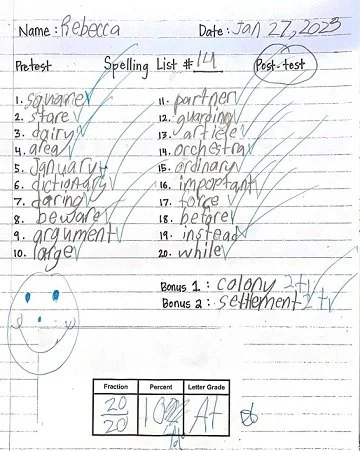 Name: Rebecca Date: Jan 27, 2023
Pretest Spelling List #14 Post-test
1. square 11. partner
2. stare 12. guarding
3. dairy 13. article
4. area 14. orchestra
5. January 15. ordinary
6. dictionary 16. important
7. daring 17. force
8. beware 18. before
9. argument 19. instead
10. large 20. while
Bonus 1: colony 2+
Bonus 2: settlement 2+
Fraction Percent Letter Grade
20/20 A+